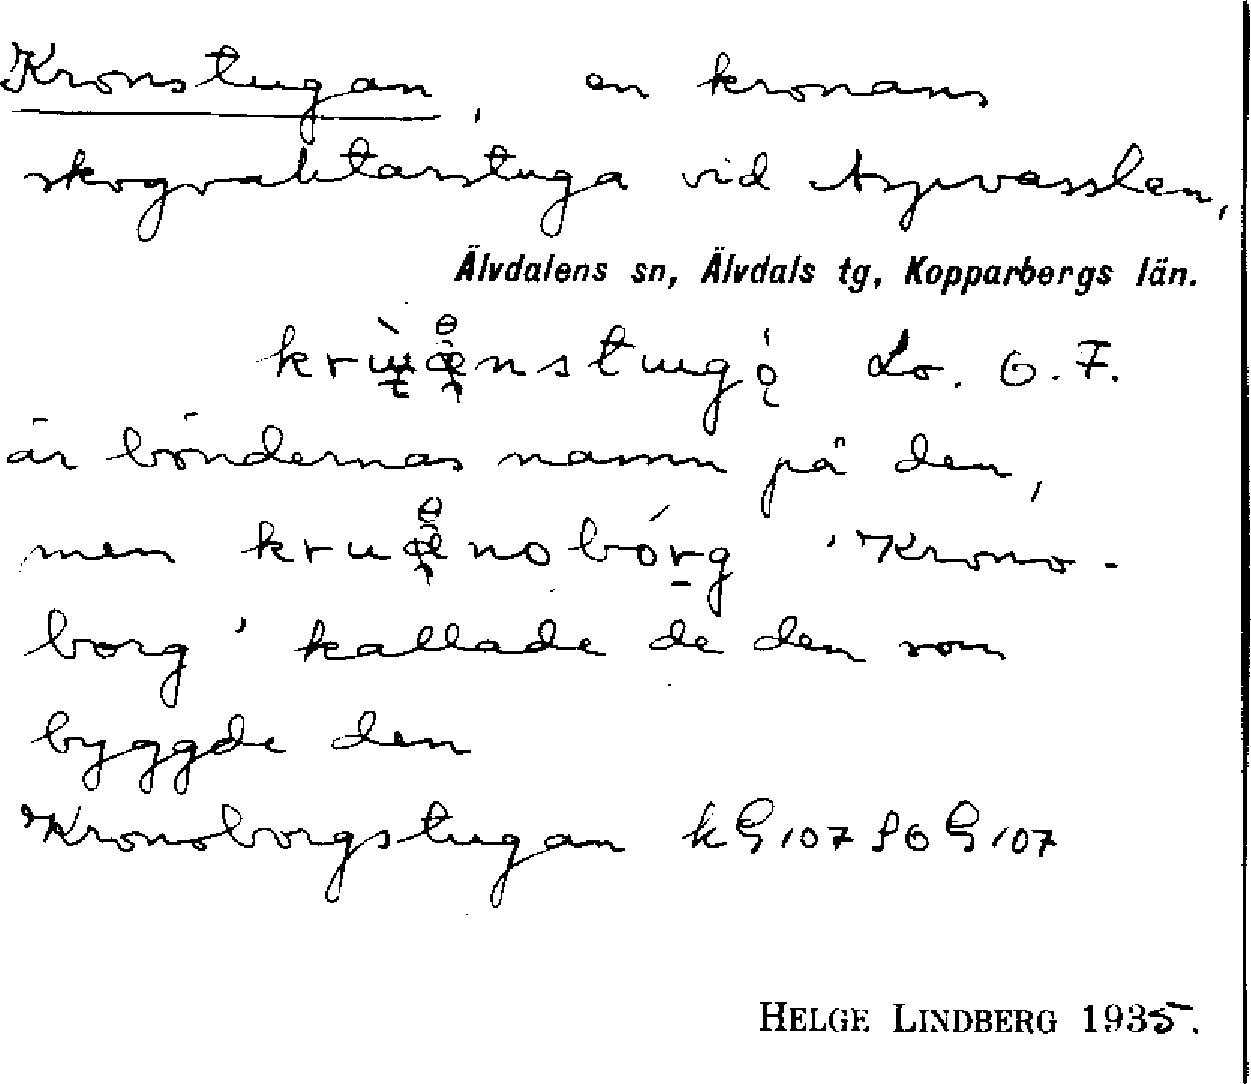 Kronstugan, en kronans
skogvaktarstuga vid Aspvasslan,
Älvdalens sn, Älvdals tg, Kopparbergs län.
Lo. O. F.
är böndernas namn på den,
men 'Krono-
borg' kallade de den som
byggde den
Kronoborgstugan kG107 SOG107
HELGE LINDBERG 1935.